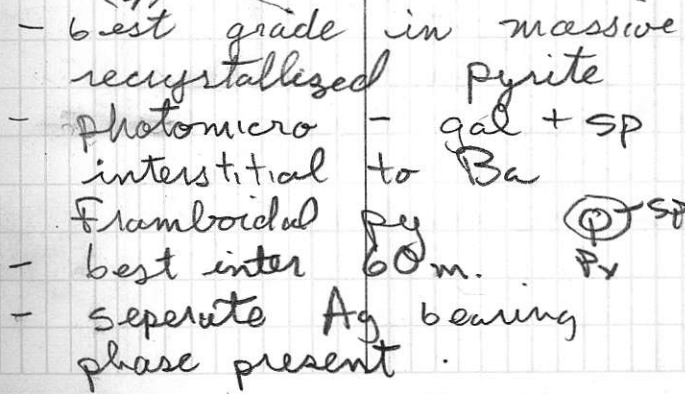 - best grade in massive
recrystallized pyrite
- photomicro - gal + sp
interstitial to Ba
Framboidal py sp
- best inter 60m. Py
- seperate Ag bearing
phase present.